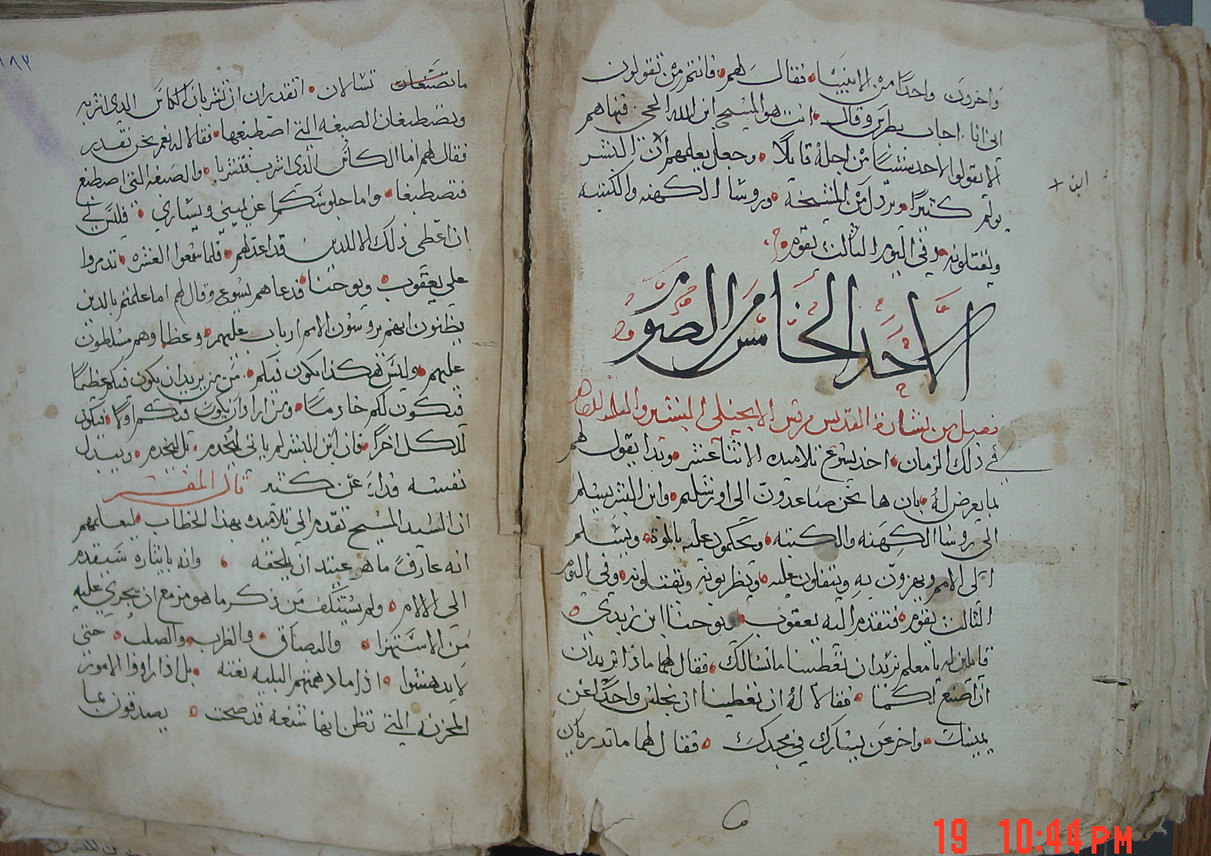 واخرون واحدًا من الانبيا فقال لهم فانتم من تقولون
اني انا اجاب بطرس وقال انت هو المسيح ابن الله الحي فنهاهم
الا يقولوا لاحد شيئًا من اجله قايلًا وجعل يعلمهم ان ابن البشر
يولم كثيرًا ويرذل من المشيخة وروسا الكهنه والكتبه
ويقتلونه وفي اليوم الثالث يقوم
ابن
الاحد الخامس من الصوم
فصل من بشارة القديس مرقس الانجيلي البشير والتلميذ الطاهر
في ذلك الزمان اخذ يسوع تلاميده الاثنا عشر وبدا يقول لهم
بما يعرض له بان ها نحن صاعدون الى اورشليم وابن البشر يسلم
الى روسا الكهنه والكتبه ويحكمون عليه بالموت ويسلم
الى الامم ويهزون به ويتفلون عليه ويضربونه ويقتلونه وفي اليوم
الثالث يقوم فتقدم اليه يعقوب ويوحنا ابن زبدي
قايلين له يا معلم نريد ان تعطينا ما نسالك فقال لهما ماذا تريدان
ان اصنع لكما فقالا له ان تعطينا ان يجلس واحدًا عن
يمينك واخر عن يسارك في مجدك فقال لهما ما تدريان
١٨٧
ما تسالان اتقدران ان تشربان الكاس الذي اشربه
وتصطبغان الصبغه التي اصطبغها فقالا له نعم نحن نقدر
فقال لهم اما الكاس الذي اشرب فتشربا والصبغه التي اصطبغ
فتصطبغا واما جلوسكما عن يميني ويساري فليس لي
ان اعطي ذلك الا للدين قد اعد لهم فلما سمعوا العشره تدمروا
على يعقوب ويوحنا فدعاهم يسوع وقال لهم اما علمتم بالدين
يظنون انهم يروسون الامم ارباب عليهم وعظما وهم مسلطون
عليهم وليس هكذا يكون فيكم من يريد ان يكون فيكم عظيمًا
فيكون لكم خادمًا ومن اراد ان يكون فيكم اولا فيكون
للكل اخرًا فان ابن البشر لم ياتي ليُخدم بل ليخدم ويبدل
نفسه فداءَ عن كثير قال المفسر
ان السيد المسيح تقدم الي تلاميده بهذا الخطاب ليعلمهم
انه عارف ما هو عتيد ان يلحقه وانه باختياره سيقدم
الي الالام ولم يستنكف من ذكر ما هو مزمع ان يجري عليه
من الاستهزا والبصاق والضرب والصلب حتى
لا يدهشوا اذا ما دهمتهم البليه بغته بل اذا راوا الامور
المحزنه التي تظن انها شنعه قد صحت يصدقون بما
19 10:44 PM